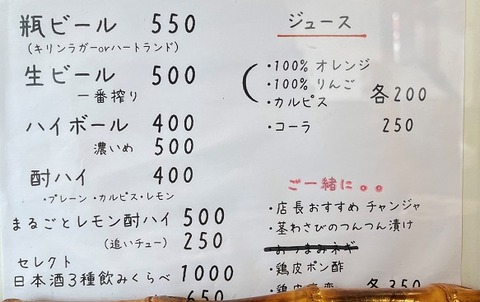 瓶ビール 550
(キリンラガーorハートランド)
生ビール 500
一番搾り
ハイボール 400
濃いめ 500
酎ハイ 400
・プレーン・カルピス・レモン
まるごとレモン酎ハイ 500
(追いチュー) 250
セレクト
日本酒3種飲みくらべ 1000
650
ジュース
・100% オレンジ
・100% りんご
・カルピス 各200
・コーラ 250
ご一緒に。。
・店長おすすめ チャンジャ
・茎わさびのつんつん漬け
おつまみネギ
・鶏皮ポン酢
・鶏皮 各350